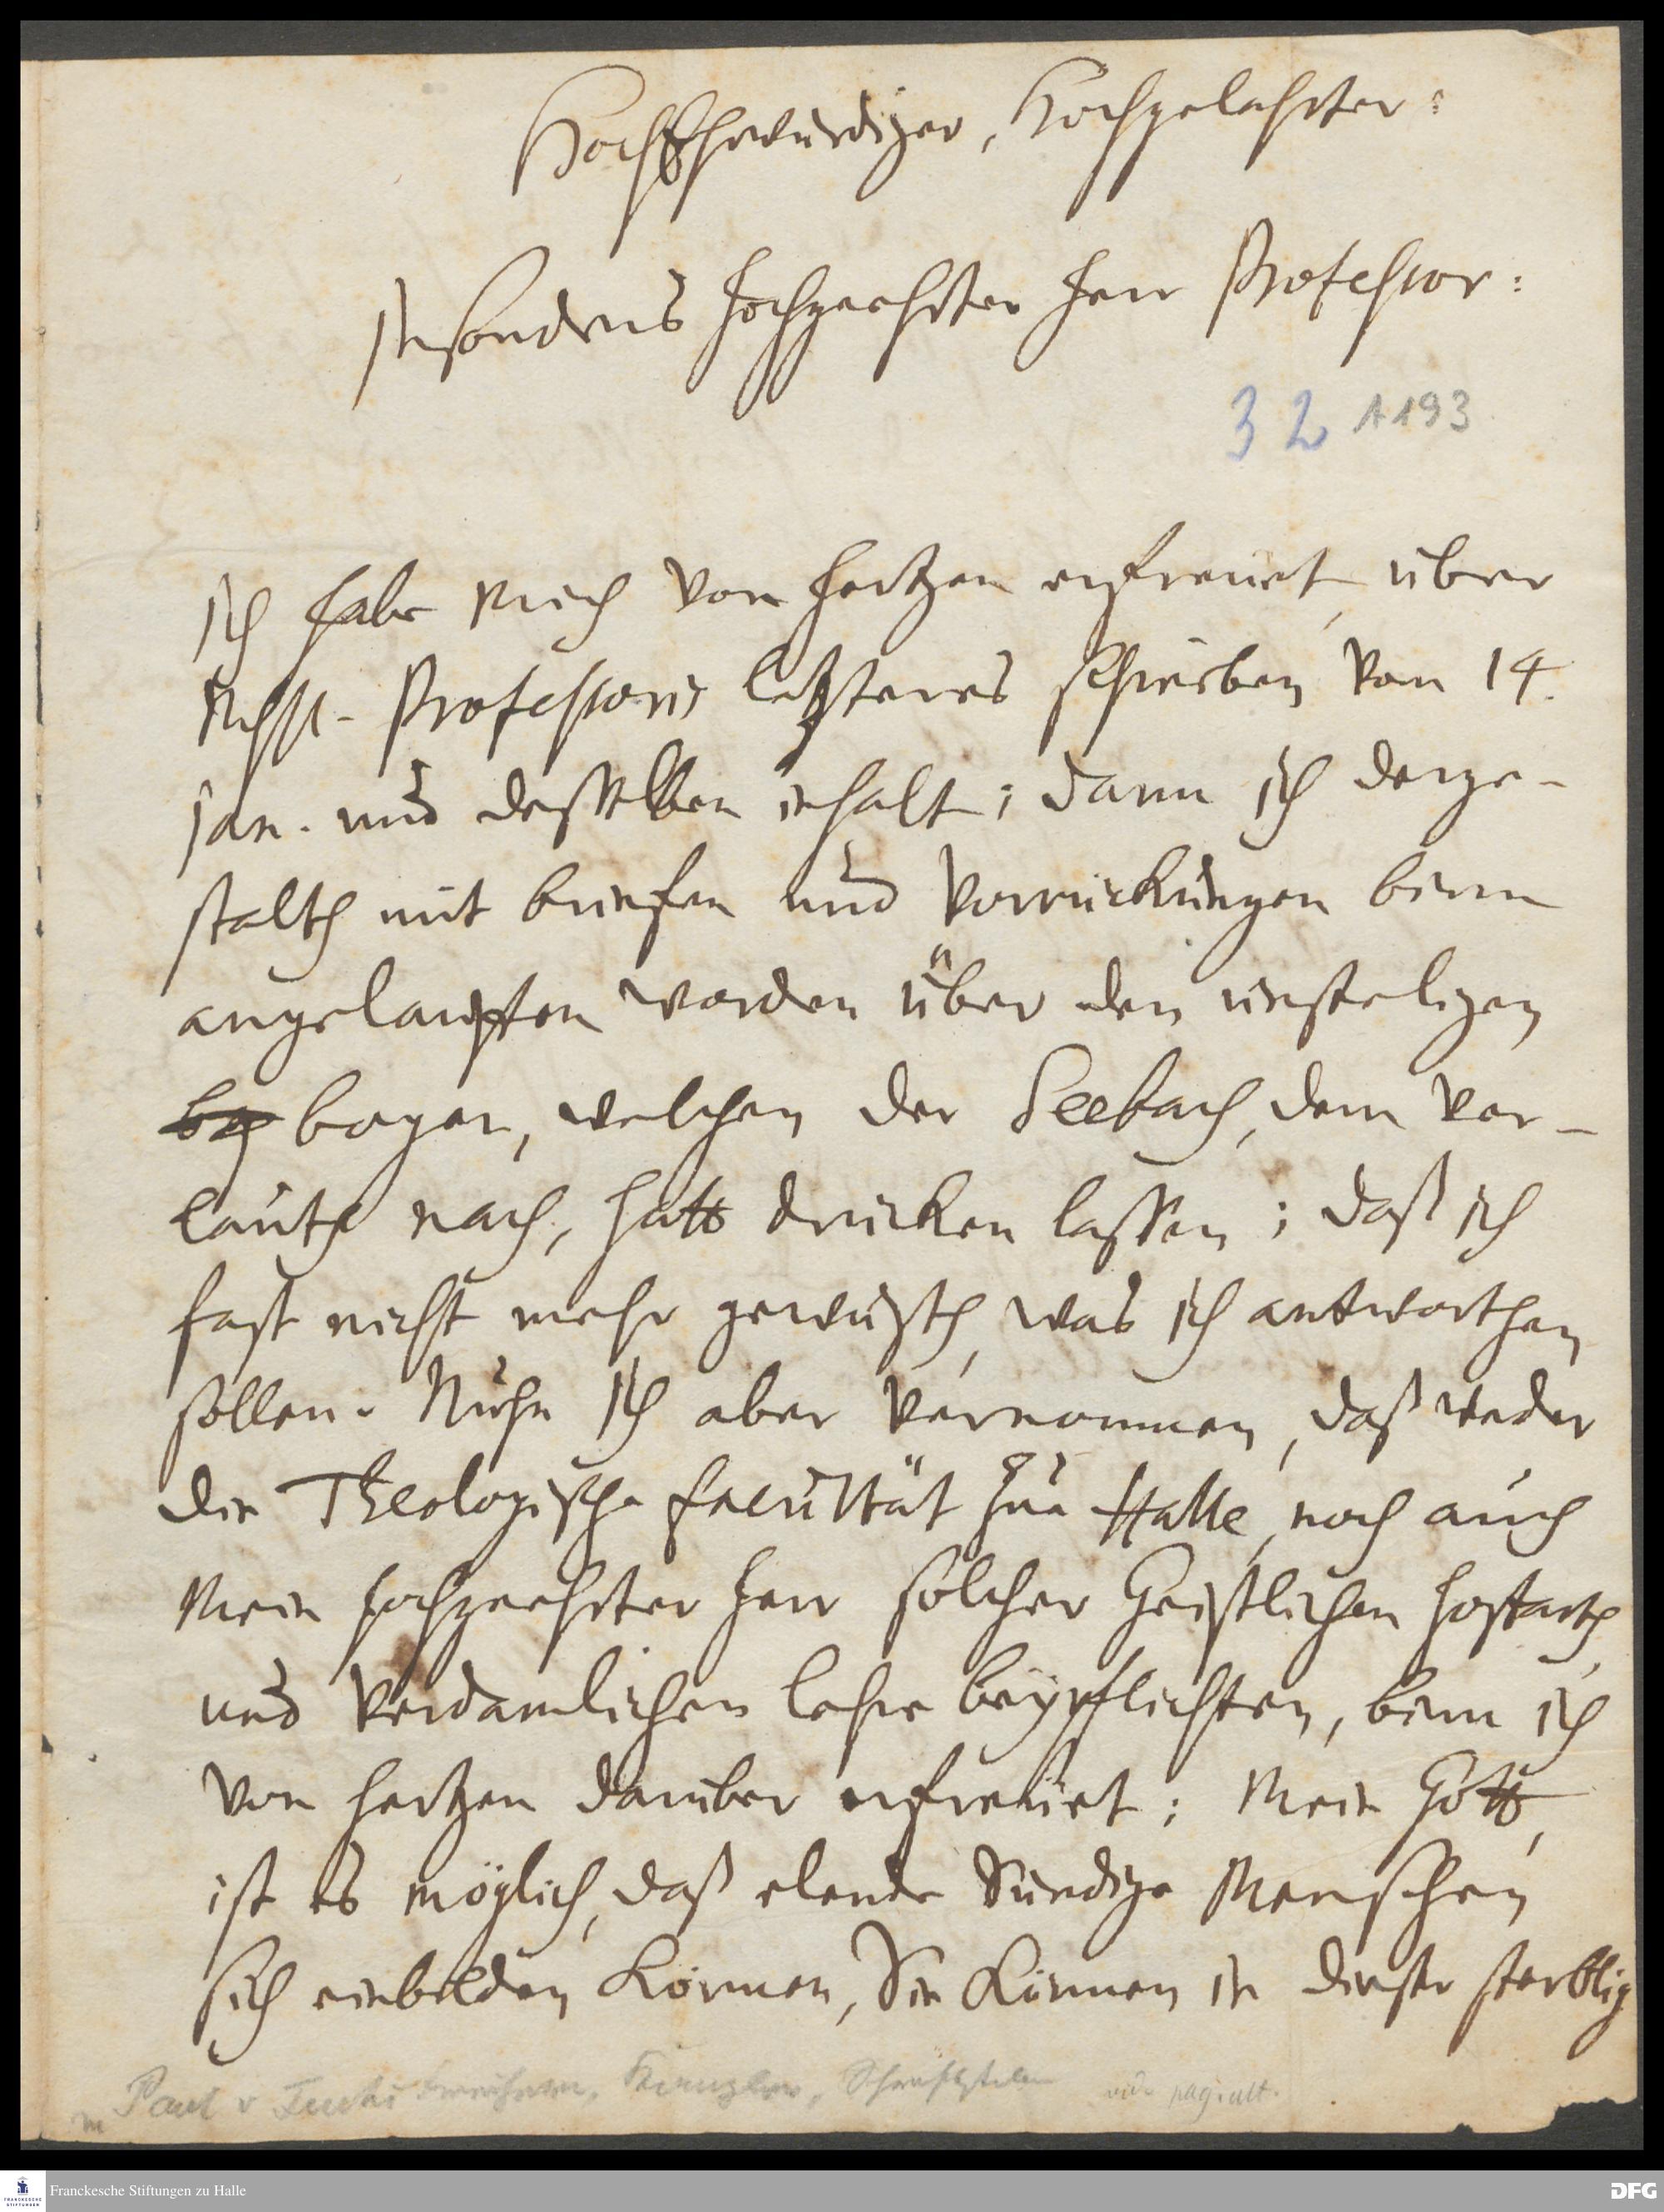 HochEhrwürdiger, Hochgelahrter:
Insonders hochgeehrter herr Professor:
32 A193
Ich habe mich von hertzen erfreuet, über
Professoris letzteres schreiben vom 14.
Jan. und desselben inhalt; dann ich derge-
stalth mit briefen und vorrückungen binn
angelauffen worden über den unseeligen
bogen, welchen der Seebach, dem ver-
lauth nach, hatt drucken lassen; daß ich
fast nicht mehr gewusth, was ich antworthen
sollen. Nuhn ich aber vernommen, daß weder
die Theologische facultät zu Halle, noch auch
Mein hochgeehrter herr solcher Geistlichen hoffarth
und verdamlichen lehre beypflichten, binn ich
von hertzen darüber erfreuet; Mein Gott,
ist es möglich, daß elende Sündige Menschen
sich einbilden können, Sie können in dieser sterblig
Paul v Fuchs Kanzler, Schriftstelle vide pag. ult.
Franckesche Stiftungen zu Halle
DFG